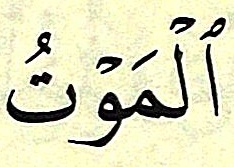 ٱلۡمَوۡتُ